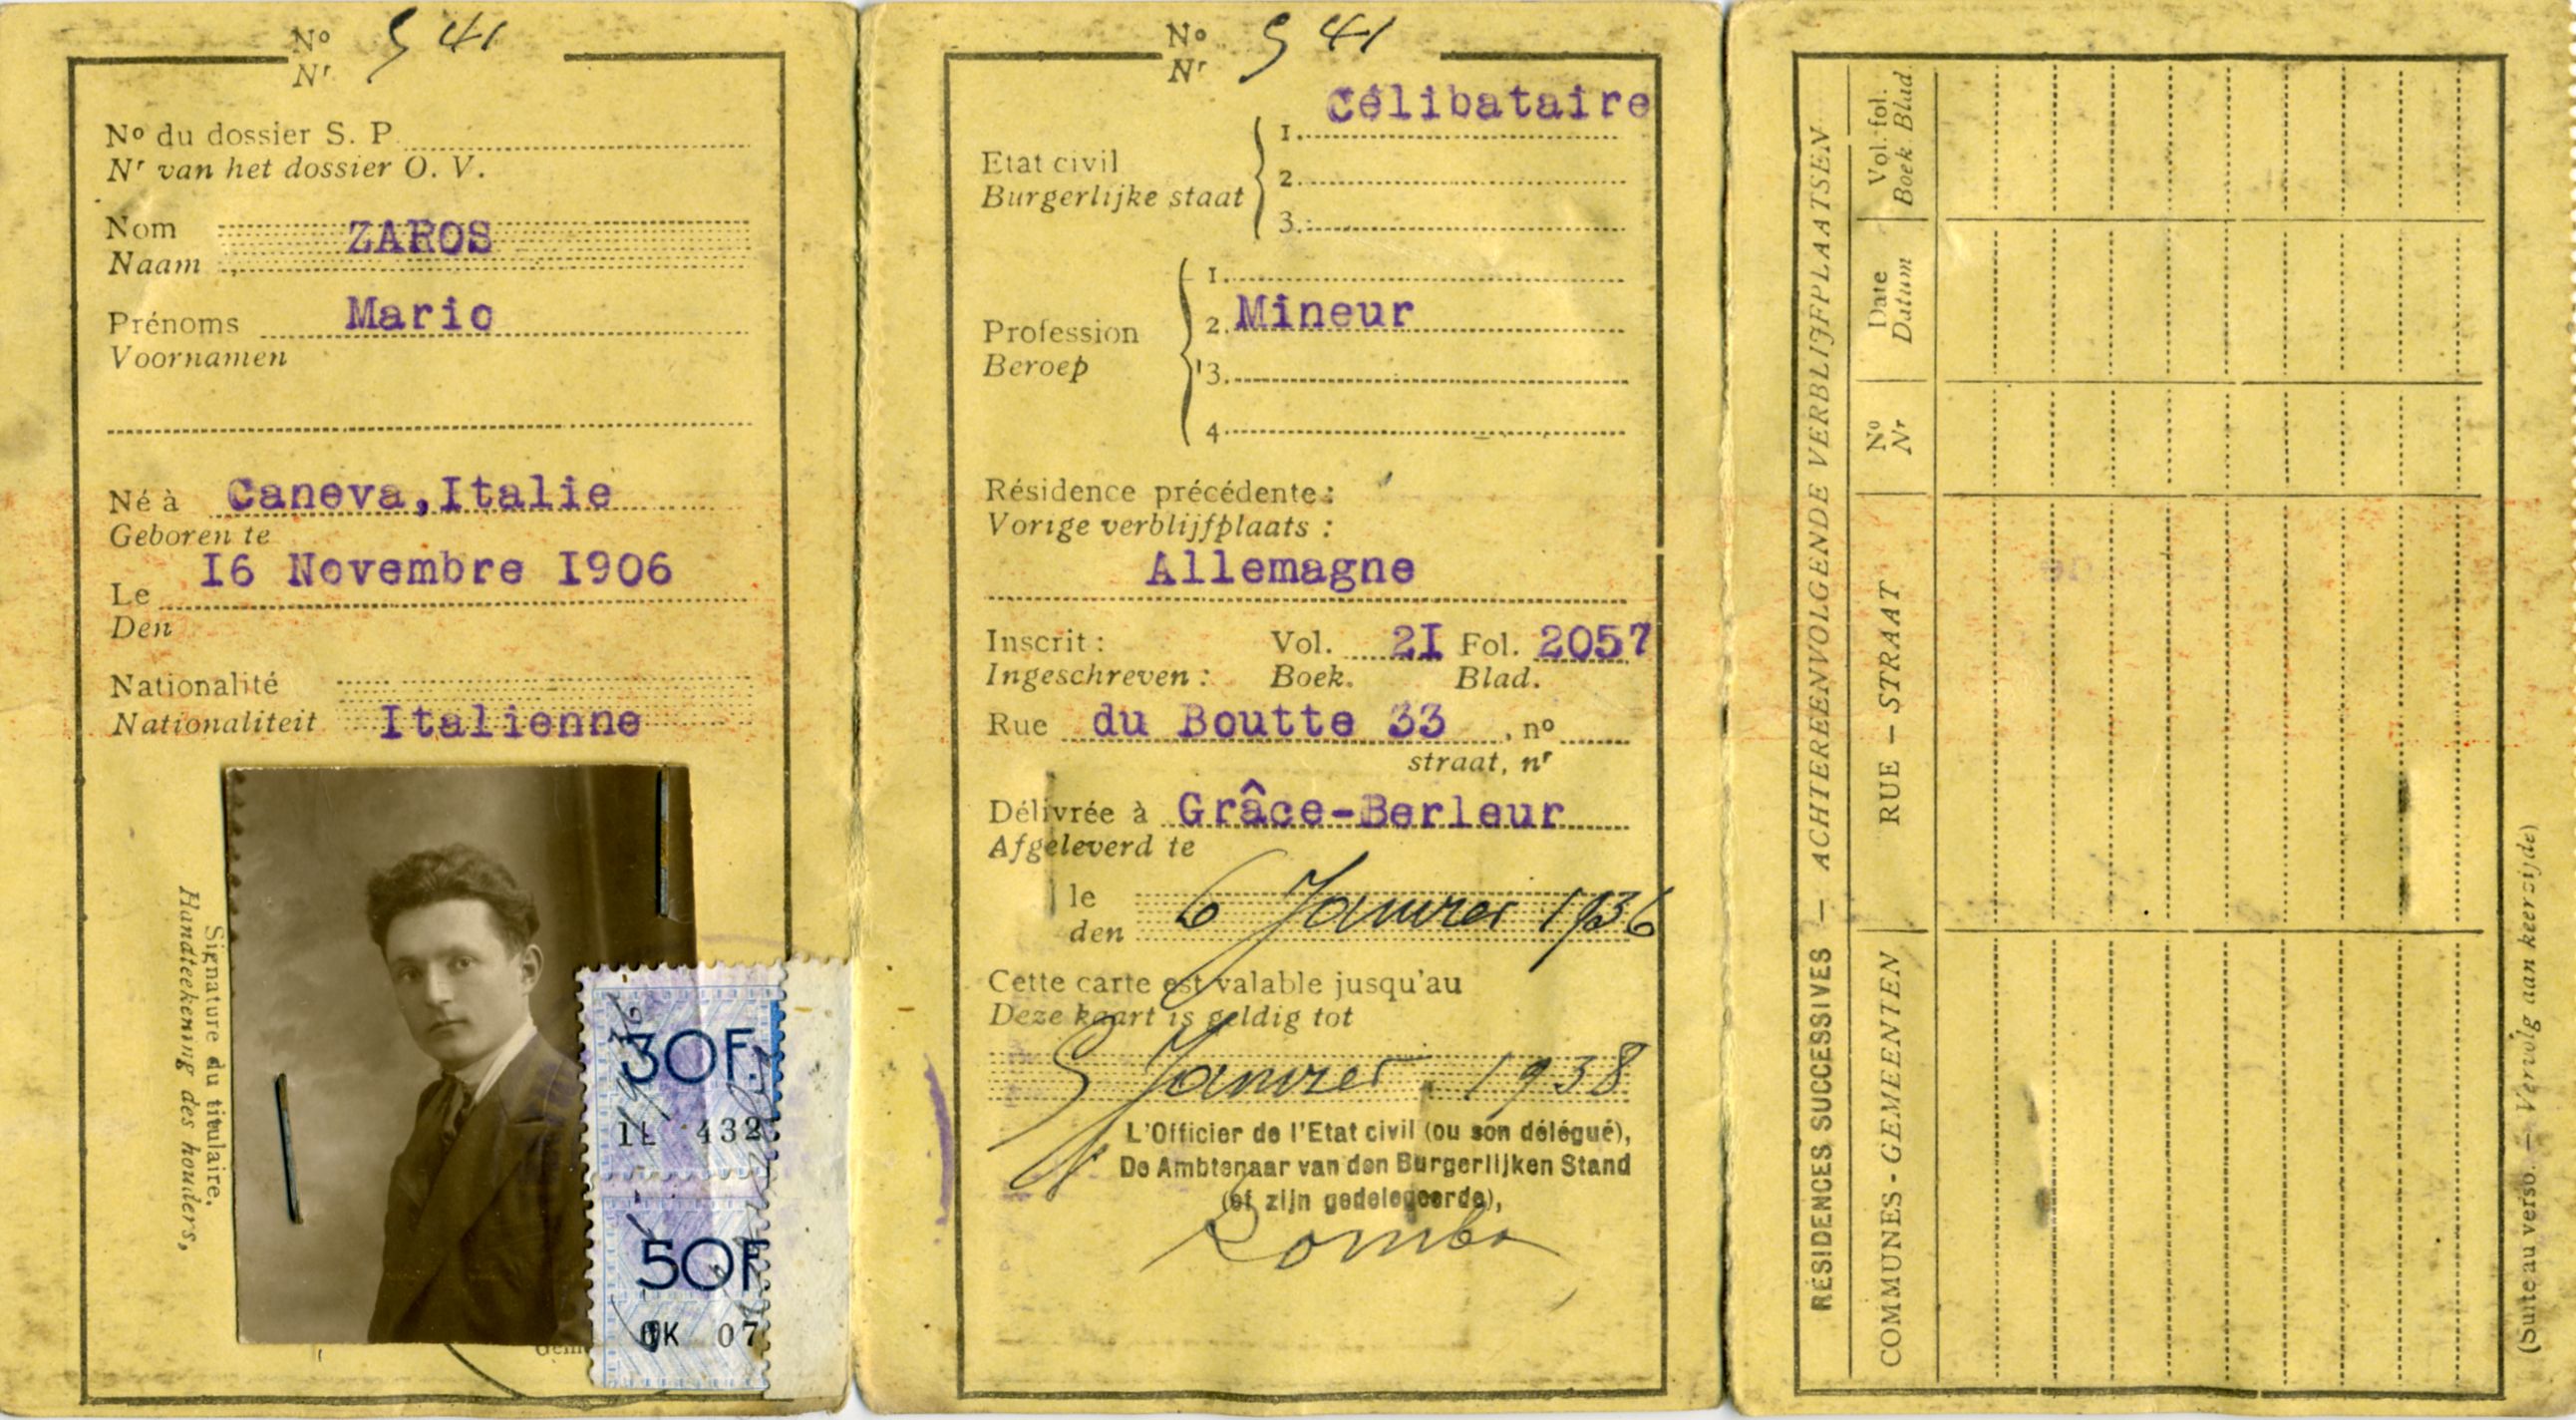 No 541
Nr
No du dossier S. P.
Nr van het dossier O. V.
Nom ZAROS
Naam
Prénoms Mario
Voornamen
Né à Caneva,Italie
Geboren te
I6 Novembre I906
Le
Den
Nationalité
Nationaliteit Italienne
Signature du titulaire.
Handteekening des houders,
30F.
432
50F
07
No 541
Nr
Célibataire
1.
Etat civil 2.
Burgerlijke staat
3.
1.
Profession 2. Mineur
Beroep 3.
4
Résidence précédente :
Vorige verblijfplaats :
Allemagne
Inscrit : Vol. 2I Fol. 2057
Ingeschreven : Boek. Blad.
Rue du Boutte 33 , no
straat, nr
Délivrée à Grâce-Berleur
Afgeleverd te
le 6 Janvier 1936
den
Cette carte est valable jusqu'au
Deze kaart is geldig tot
5 Janvier 1938
L'Officier de l'Etat civil (ou son délégué),
De Ambtenaar van den Burgerlijken Stand
(of zijn gedelegeerde),
RÉSIDENCES SUCCESSIVES — ACHTEREENVOLGENDE VERBLIJFPLAATSEN
COMMUNES - GEMEENTEN
RUE - STRAAT
No
Nr
Date
Datum
Vol. fol.
Boek Blad
(Suite au verso. — Vervolg aan keerzijde)